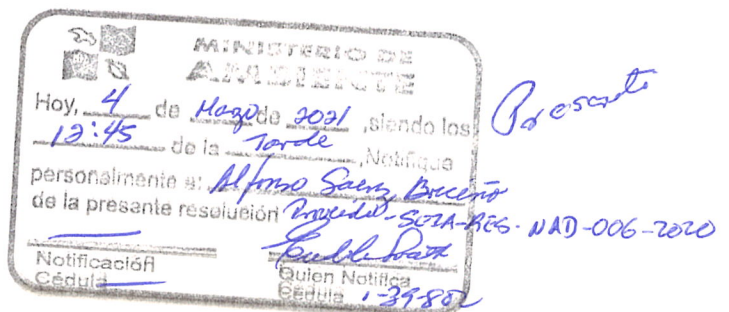 MINISTERIO DE
AMBIENTE
Hoy, 4 de Marzo de 2021, siendo los
12:45 de la Tarde, Notifique
personalmente a: Alfonso Saenz Briceño
de la presente resolución SEIA-RES-NAD-006-2020
Notificación Quien Notifica
Cédula Cédula 1-39-802